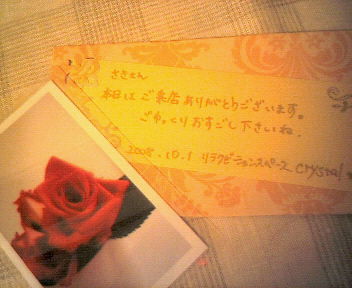 ささえん
本日は ご来店ありがとうございます。
ごゆっくりおすごし下さいね。
2008.10.1 リラクゼーションスペース crystal